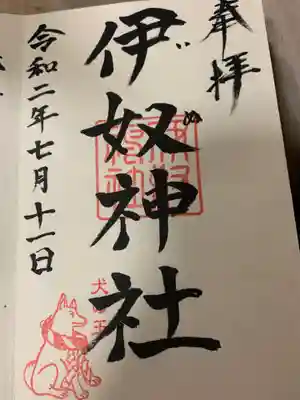 奉拝
伊奴神社
いぬ
令和二年七月十一日
犬の王